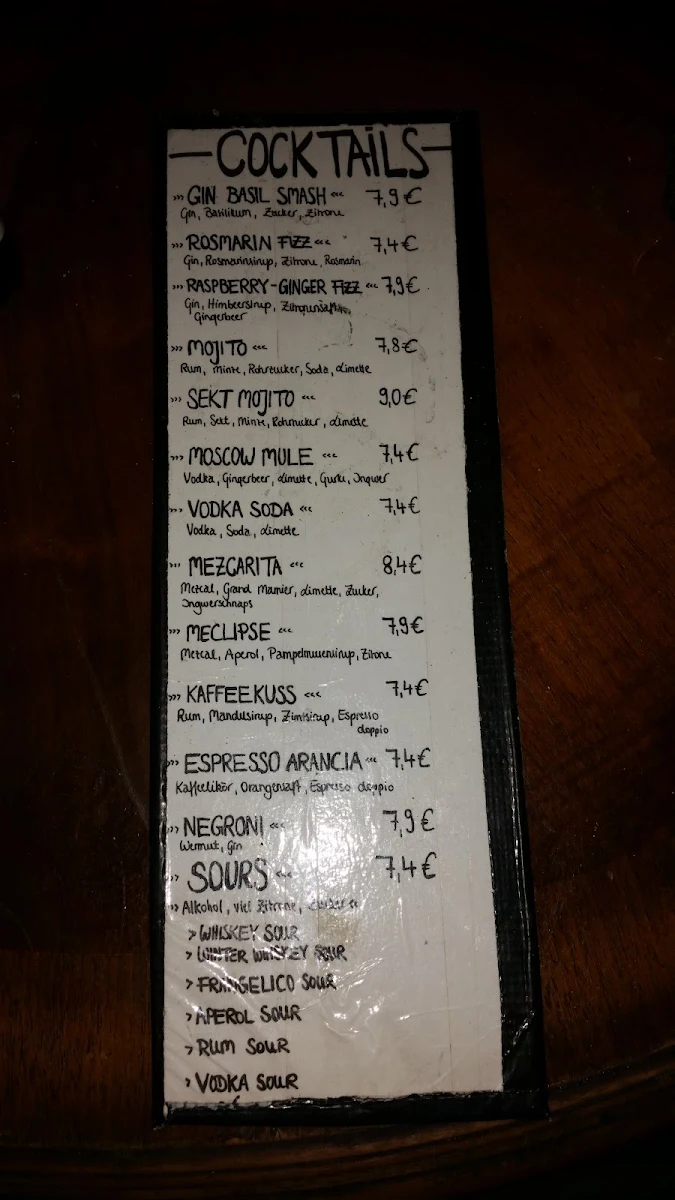 COCKTAILS
››› GIN BASIL SMASH ‹‹‹ 7,9€
Gin, Basilikum, Zucker, Zitrone
››› ROSMARIN FIZZ ‹‹‹ 7,4€
Gin, Rosmarinsirup, Zitrone, Rosmarin
››› RASPBERRY-GINGER FIZZ ‹‹‹ 7,9€
Gin, Himbeersirup, Zitronensaft,
Gingerbeer
››› MOJITO ‹‹‹ 7,8€
Rum, Minze, Rohrzucker, Soda, Limette
››› SEKT MOJITO ‹‹‹ 9,0€
Rum, Sekt, Minze, Rohrzucker, Limette
››› MOSCOW MULE ‹‹‹ 7,4€
Vodka, Gingerbeer, Limette, Gurke, Ingwer
››› VODKA SODA ‹‹‹ 7,4€
Vodka, Soda, Limette
››› MEZCARITA ‹‹‹ 8,4€
Mezcal, Grand Marnier, Limette, Zucker,
Ingwerschnaps
››› MECLIPSE ‹‹‹ 7,9€
Mezcal, Aperol, Pampelmusensirup, Zitrone
››› KAFFEEKUSS ‹‹‹ 7,4€
Rum, Mandelsirup, Zimtsirup, Espresso
doppio
››› ESPRESSO ARANCIA ‹‹‹ 7,4€
Kaffeelikör, Orangensaft, Espresso doppio
››› NEGRONI ‹‹‹ 7,9€
Wermut, Gin
›› SOURS ‹‹‹ 7,4€
›› Alkohol, viel Zitrone, Zucker ‹‹
> WHISKEY SOUR
> WINTER WHISKEY SOUR
> FRANGELICO SOUR
> APEROL SOUR
> RUM SOUR
> VODKA SOUR